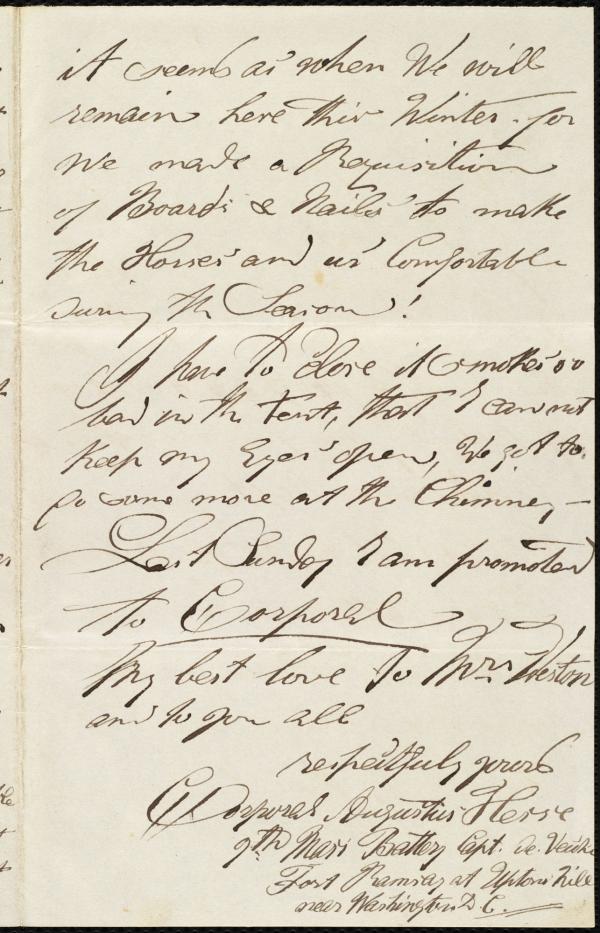 it seems as when We will
remain here this Winter. for
we made a Requisition
of Boards & Nails to make
the Horses and us Comfortable
during th Season!
I have to Close it smokes so
bad in the Tent, that I can not
Keep my Eyes open, We got to
do some more at the Chimney, —
Last Sunday I am promoted
to Corporal
My best love to Mrs Weston
and to you all
respectfuly yours
Corporal Augustus Hesse
9th Mass Battery Capt. De. Vecke
Fort Ramsay at Uptons Hill
near Washington D. C.